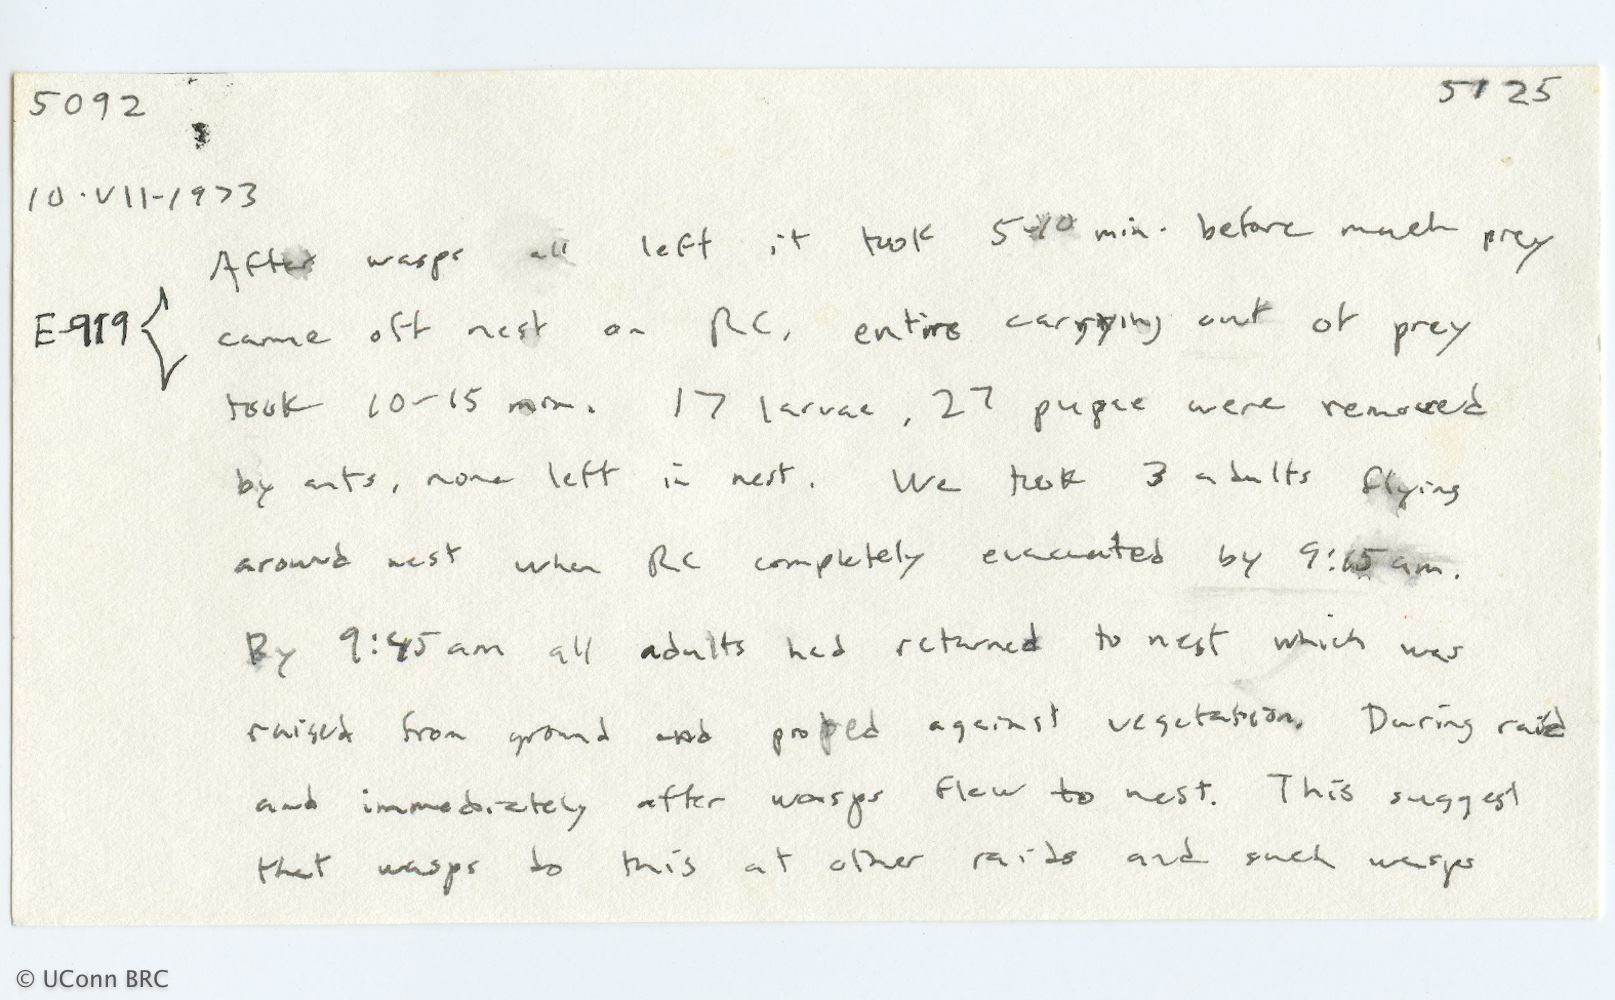 5092
5125
10·VII-1973
After wasps all left it took 5-10 min. before much prey
E-919 { came off nest on RC, entire carrying out of prey
took 10-15 min. 17 larvae, 27 pupae were removed
by ants, none left in nest. We took 3 adults flying
around nest when RC completely evacuated by 9:15 am.
By 9:45 am all adults had returned to nest which was
raised from ground and propped against vegetation. During raid
and immediately after wasps flew to nest. This suggest
that wasps do this at other raids and such wasps
© UConn BRC